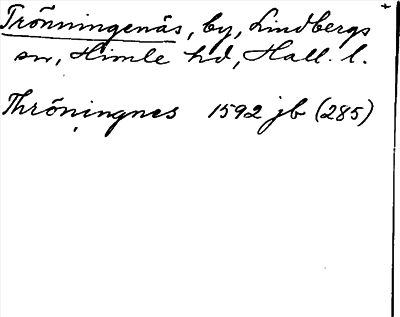 Trönningenäs, by, Lindbergs +
sn, Himle hd, Hall. l.
Thröningnes 1592 jb (285)